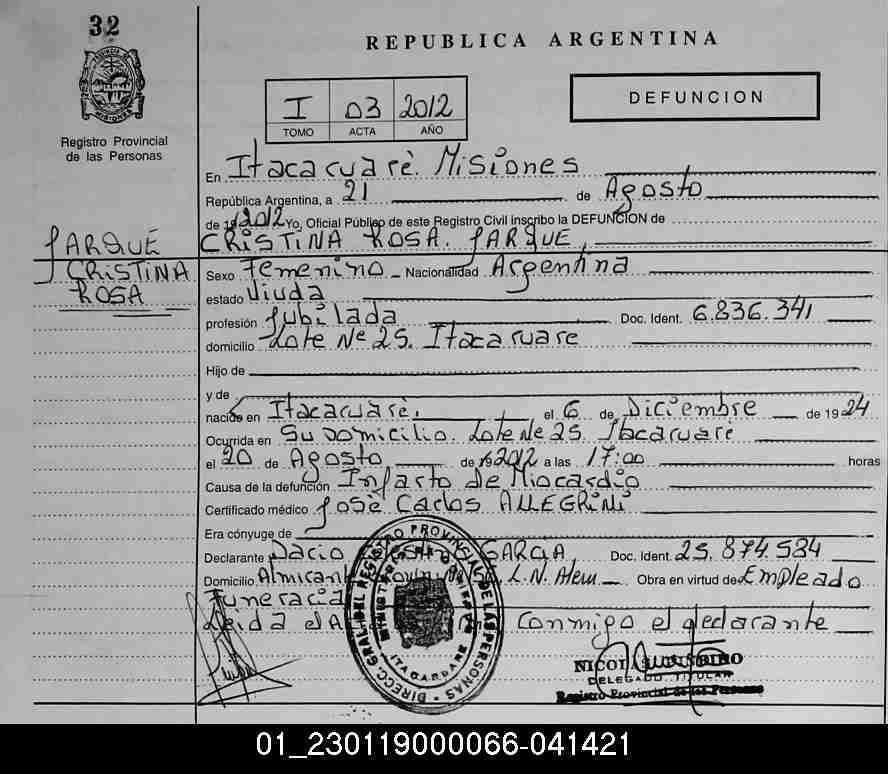 32
REPUBLICA ARGENTINA
PROVINCIA
MISIONES
Registro Provincial
de las Personas
I 03 2012
TOMO ACTA AÑO
DEFUNCION
En Itacaruarè. Misiones
República Argentina, a 21 de Agosto
de 2012 Yo, Oficial Público de este Registro Civil inscribo la DEFUNCION de
JARQUE CRISTINA ROSA. JARQUE
CRISTINA Sexo Femenino Nacionalidad Argentina
ROSA estado Viuda
profesión Jubilada Doc. Ident. 6.836.341
domicilio Lote Nº 25. Itacaruare
Hijo de
y de
nacido en Itacaruarè. el 6 de Diciembre de 1924
Ocurrida en Su Domicilio. Lote Nº 25. Itacaruare
el 20 de Agosto de 2012 a las 17:00 horas
Causa de la defunción Infarto de Miocardio
Certificado médico Josè Carlos ALLEGRINI
Era cónyuge de
Declarante Dacio GARCIA Doc. Ident. 25.874.534
Domicilio L.N. Alem Obra en virtud de Empleado
Funeraria
Leida el Conmigo el declarante
DIRECC. GRAL. DEL REGISTRO PROVINCIAL DE LAS PERSONAS
ITACARUARE
DELEGADO TITULAR
Registro Provincial de las Personas
01_230119000066-041421